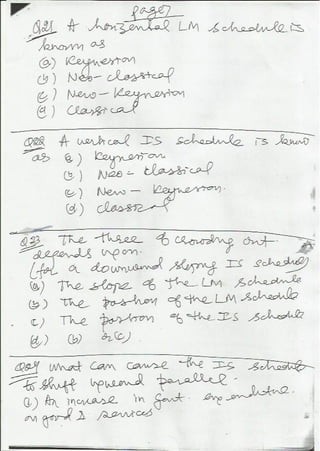 page 7
Q21 A horizental LM schedule is
known as
(a) Keynesian
(b) Neo-classical
(c) New-Keynesian
(d) Classical
Q22 A vertical IS schedule is known
as (a) Keynesian
(b) Neo-classical
(c) New-Keynesian.
(d) classical
Q23 The three of crowding out
depends upon.
(for a downward sloping IS schedule)
(a) The slope of the LM schedule
(b) The position of the LM schedule
(c) The position of the IS schedule
(d) (b) or (c)
Q24 what can cause the IS schedule
to shift upward parallel.
(1) An increase in Govt. expenditure
on good & services